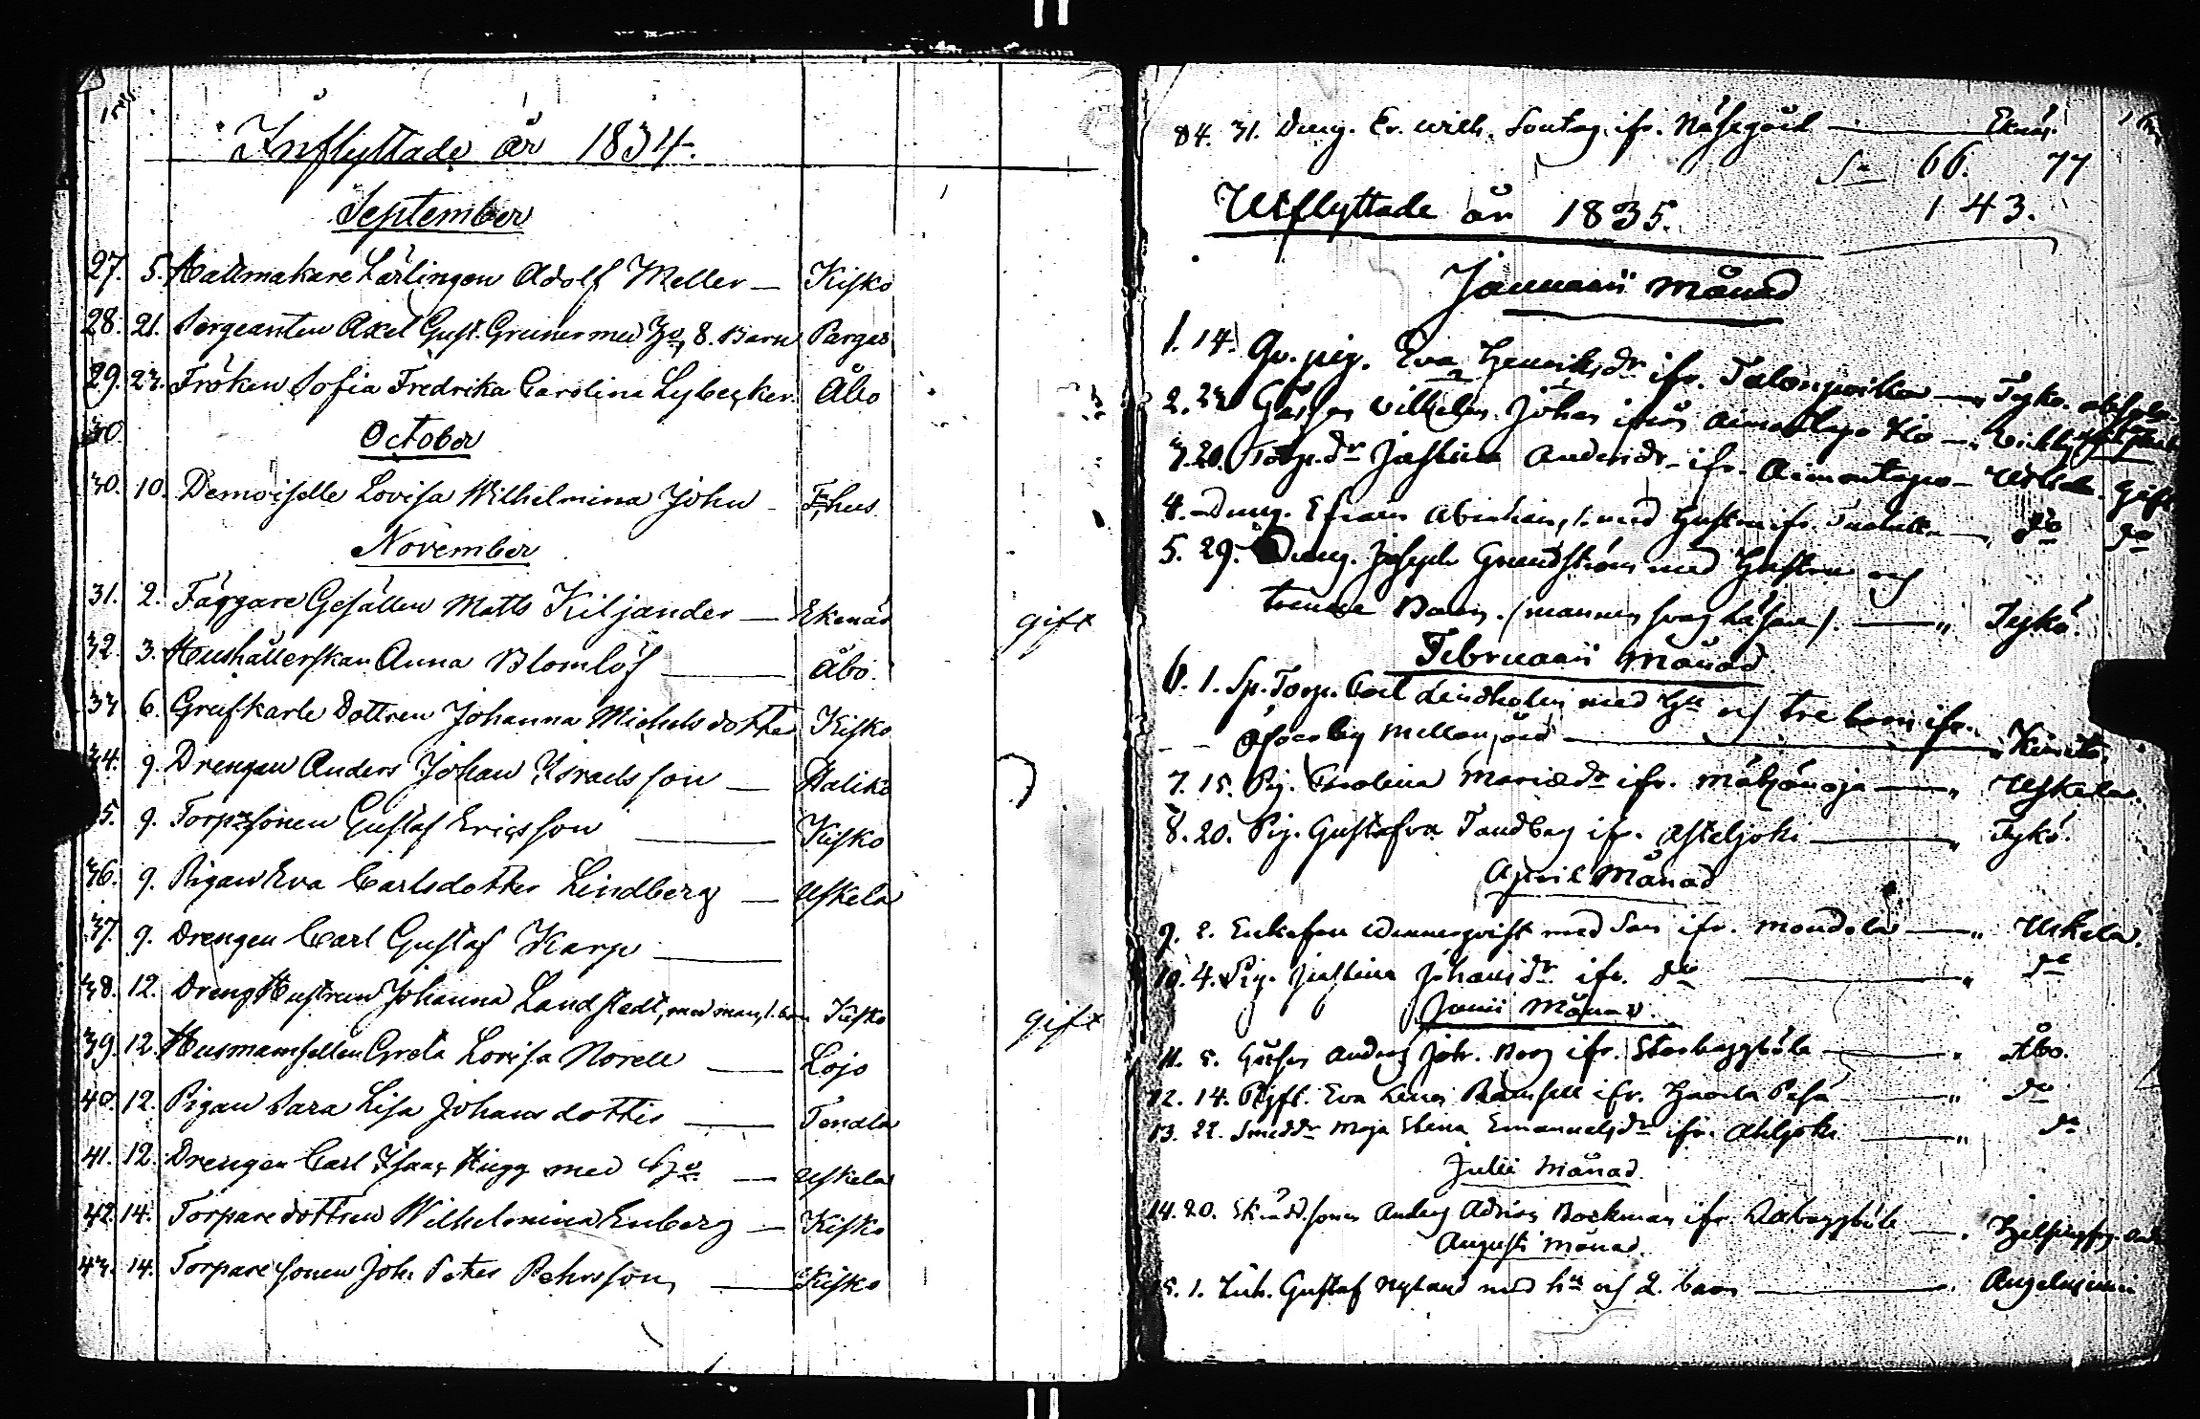 Inflyttade år 1834.
September
27. 5. Hattmakare Lärlingen Adolf Meller — Kisko
28. 21. Sergeanten Axel Gust. Greiner med Hu, 8. Barn Pargas
29. 23. Fröken Sofia Fredrika Carolina Lybecker. Åbo
30. October
30. 10. Demoiselle Lovisa Wilhelmina John - T,hus
November
31. 2. Färgare Gesällen Matts Kiljander — Ekenäs gift
32. 3. Hushållerskan Anna Blomlöf — Åbo.
33 6. Grufkarls Dottren Johanna Michelsdotter Kisko
34. 9. Drengen Anders Johan Israelsson — Haliko
35. 9. Torp.sonen Gustaf Ericsson — Kisko
36. 9. Pigan Eva Carlsdotter Lindberg — Uskela
37. 9. Drengen Carl Gustaf Karp —
38. 12. Dreng Hustrun Johanna Landstedt, med man, 1. barn Kisko
39. 12. Husmamsellen Greta Lovisa Norell — Lojo gift
40. 12. Pigan Sara Lisa Johansdotter — Tenala
41. 12. Drengen Carl Isaac Hugg med Hu — Uskela
42. 14. Torparedottren Wilhelmina Enberg — Kisko
43. 14. Torparesonen Joh. Peter Pehrsson — Kisko
84. 31. Dreng. Er. Wilh. Sontag ifr. Näsegård — Eknäs.
Sa 66. 77
Utflyttade år 1835. 143.
Januarii Månad
1. 14. Gr. pig. Eva Henriksdr ifr. — Tykö.
2. 23 Gossen Vilhelm Johan ifrån
3. 20. Torp.dr Justina Andersdr ifr. Aimontapo — Uskela. gift
4. — Dreng. Efraim Abraham, 1. med Hustru ifr. — do do
5. 29. Dreng. Joseph Grundström med Hustru och
trenne Barn. (mannen svag läsare). — " Tykö.
Februarii Månad
6. 1. Sp. Torp. Carl Lindholm med Hu och tre barn ifr.
- - by Mellangård — " Kimito.
7. 15. Pig. Carolina Mariædr ifr. — " Uskela.
8. 20. Pig. Gustafva Sandberg ifr. Asteljoki — " Tykö.
April Månad
9. 2. Enkefru Wennerqvist med Son ifr. — " Uskela.
10. 4. Pig. Justina Johansdr ifr. do — " do
Junii Månad.
11. 5. Gossen Anders Joh. Berg ifr. Storbäggböle — " Åbo.
12. 14. Eva Lena Ramsell ifr. — " do
13. 22. Smeddr Maja Stina Emanuelsdr ifr. — " do
Julii Månad.
14. 20. Anders Adrian Bockman ifr. — " Helsingfrs.
Augusti Månad.
15. 1. Inh. Gustaf Nylund med hu och 2. barn — " Angelniemi